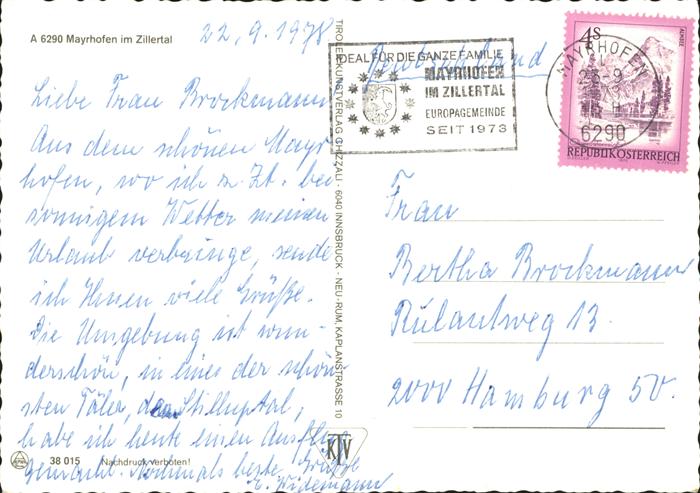 A 6290 Mayrhofen im Zillertal
22.9.1978
Liebe Frau Brockmann
Aus dem schönen Mayr-
hofen, wo ich z. Zt. bei
sonnigem Wetter meinen
Urlaub verbringe, sende
ich Ihnen viele Grüße.
Die Umgebung ist wun-
derschön, in eines der schön-
sten Täler, das Stilluptal,
habe ich heute einen Ausflug
gemacht. Nochmals beste Grüße
E. Widemann
38 015
Nachdruck verboten!
TIROLER KUNSTVERLAG CHIZZALI · 6040 INNSBRUCK - NEU-RUM, KAPLANSTRASSE 10
KTV
Deutschland
IDEAL FÜR DIE GANZE FAMILIE
MAYRHOFEN
IM ZILLERTAL
EUROPAGEMEINDE
SEIT 1973
MAYRHOFEN
6290
4S
REPUBLIK ÖSTERREICH
Frau
Bertha Brockmann
Rülautweg 13.
2000 Hamburg 50.